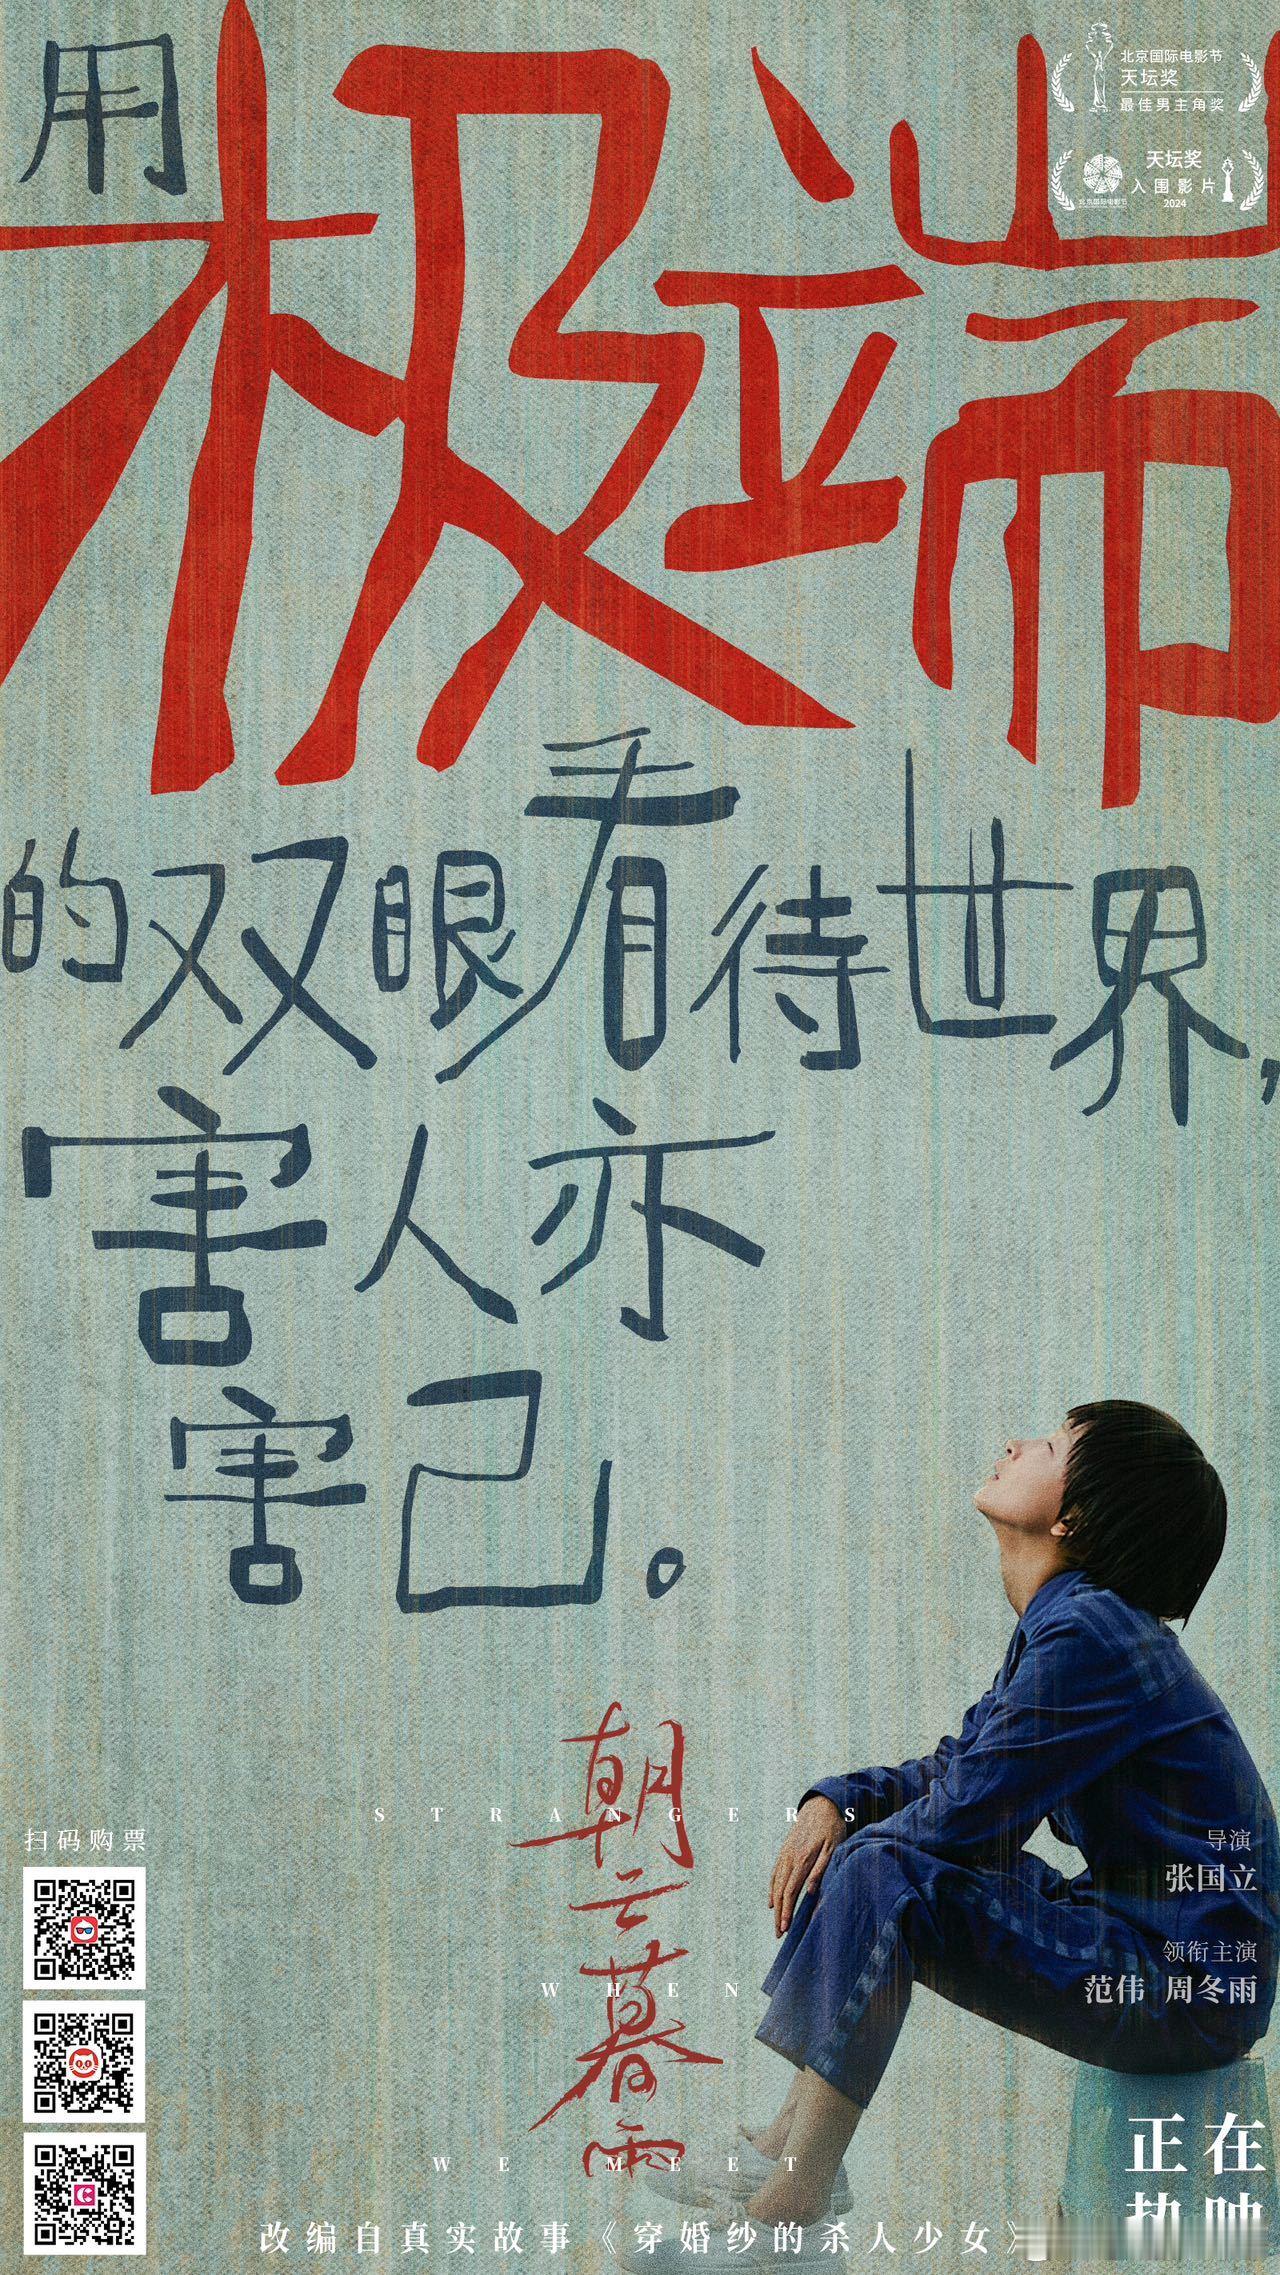 用极端
的双眼看待世界，
害人亦
害己。
北京国际电影节
天坛奖
最佳男主角奖
天坛奖
入围影片
北京国际电影节
2024
朝云暮雨
STRANGERS
WHEN
WE MEET
扫码购票
导演
张国立
领衔主演
范伟 周冬雨
正在
热映
改编自真实故事《穿婚纱的杀人少女》